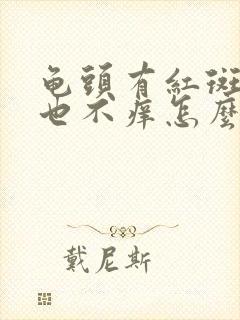 龟頭有紅斑
也不痒怎麼
戴尼斯